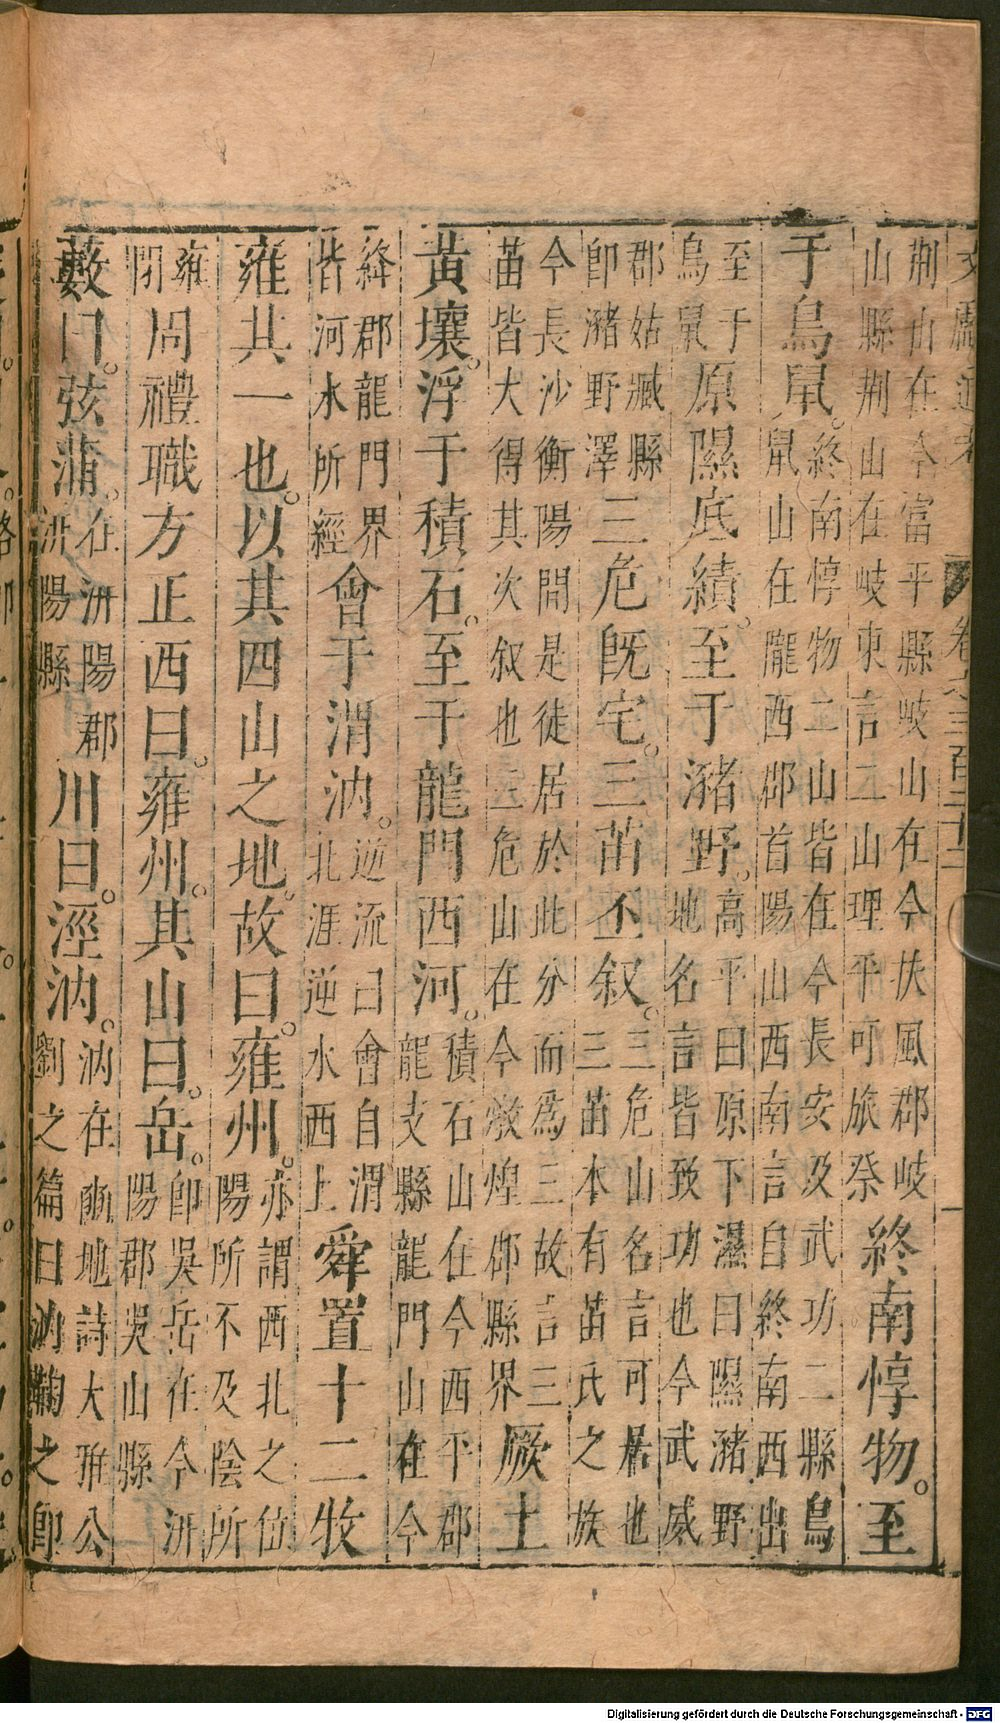 文獻通考 卷之三百二十二
荆山在今富平縣岐山在今扶風郡岐山縣荆山在岐東言二山理平可旅祭終南惇物。至
于鳥鼠。終南惇物二山皆在今長安及武功二縣鳥鼠山在隴西郡首陽山西南言自終南西出
至于鳥鼠原隰底績。至于瀦野。高平曰原下濕曰隰瀦野地名言皆致功也今武威
郡姑臧縣卽瀦野澤三危旣宅。三苗丕叙。三危山名言可居也三苗本有苗氏之族
今長沙衡陽間是徒居於此分而爲三故言三苗皆大得其次叙也三危山在今燉煌郡縣界厥土
黄壤。浮于積石。至于龍門西河。積石山在今西平郡龍支縣龍門山在今
絳郡龍門界皆河水所經會于渭汭。逆流曰會自渭北涯逆水西上舜置十二牧
雍其一也。以其四山之地。故曰。雍州。亦謂西北之位陽所不及陰所
雍閉周禮職方正西曰。雍州。其山曰。岳。卽吳岳在今汧陽郡吳山縣
藪曰。弦蒲。在汧陽郡汧陽縣川曰。涇汭。汭在豳地詩大雅公劉之篇曰汭鞫之卽
Digitalisierung gefördert durch die Deutsche Forschungsgemeinschaft - DFG